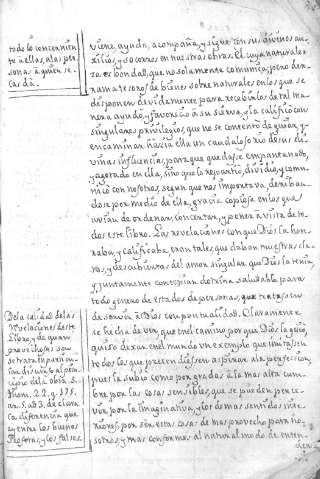 todo lo concerniente
a ellas, a las per
sonas a quien se
ca da.
viene, ayuda, acompaña, y sigue con sus divinos au
xilios, y socorros en nuestras obras. El cuya naturale
za es bondad, que no solamente comunica, pero der
rama tesoros de bienes sobre naturales en los que se
disponen devidamente para recebirlos de tal ma
nera ayudó, y favoreció a su sierva, y la calificó con
singulares privilegios, que no se contentó de guiar, y en
caminar hazia ella un caudaloso rio de sus di
vinas influencias, para que quedase empantanado,
y agotado en ella, sino que lo repartió, dividió, y comu
nicó con nosotros, segun que nos importava, derivan
dose por medio de ella, gracia copiosa en los que
avian de ordenar, concertar, y poner a vista de to
dos este libro. Las revelaciones con que Dios la hon
raba, y calificaba, eran tales, que daban muestras cla
ras, y descubiertas del amor singular que Dios la tenia,
y juntamente contenian dotrina saludable para
todo genero de estados de personas, que tratasen
de servir a Dios con puntualidad. Claramente
se hecha de ver, que en el camino por que Dios la guió,
quiso dexar en el mundo un exemplo que imitasen
todos los que pretendiessen aspirar a la perfeccion,
pues la subio como por grados a la mas alta cum
bre por las cosas sensibles, que se pueden perce
vir por la imaginativa, y los demas sentidos inte
riores, por ser esta cosa de mas provecho para no
sotros, y mas conforme al natural modo de enten
der
De la calidad de las
Revelaciones deste
Libro, y de quan
provechosas son
se tratara en
su discurso al prin
cipio de la obra. S.
Thom. 2.2. q. 175.
ar. 5. ad 3. declara
la diferencia que
ay entre los buenos
Profetas, y los falsos.